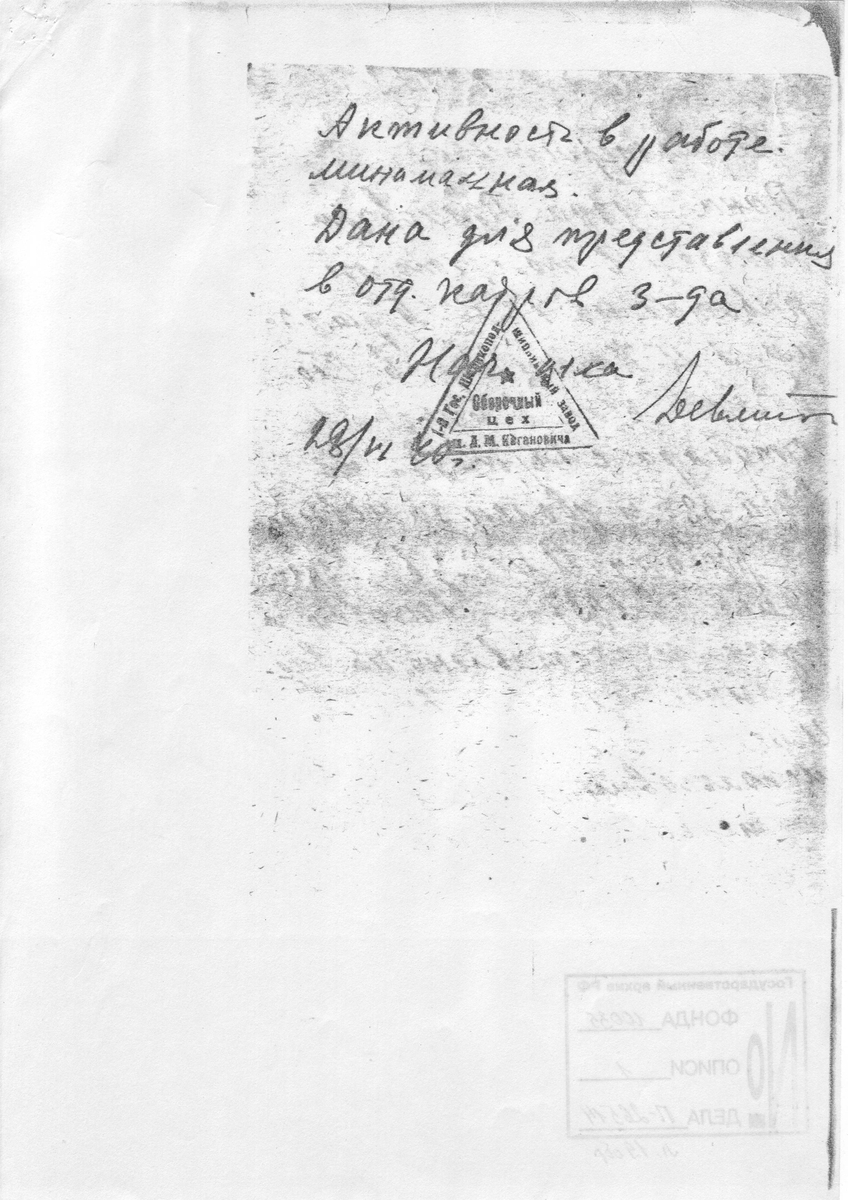 Активность в работе
минимальная.
Дана для представления
в отд. кадров з-да
Нач. цеха
1-й Гос. Шарикопод-
шипниковый завод
Сборочный
цех
им. Л. М. Кагановича
28/
Государственный архив РФ
№
ФОНДА 10035
ОПИСИ 1
ДЕЛА П-26514